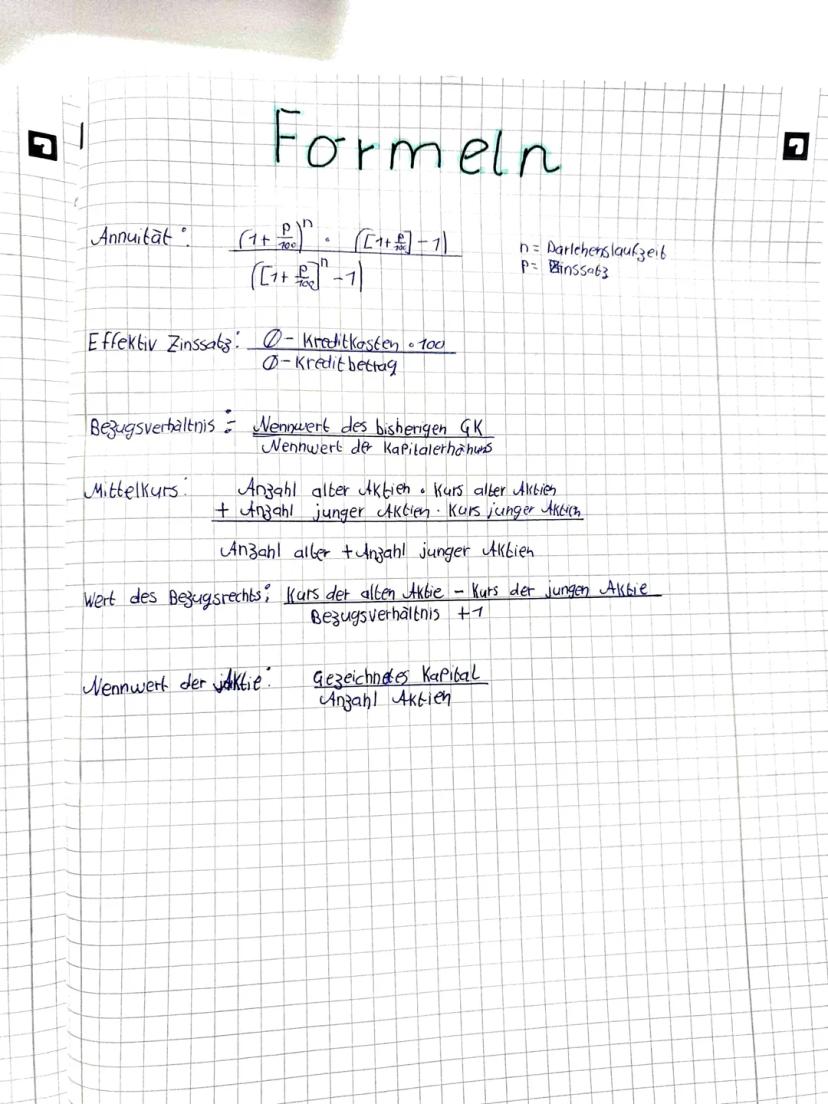 Formeln
Annuität: (1+ p/100)^n · ([1+ p/100] - 1)
([1+ p/100]^n - 1)
n = Darlehenslaufzeit
p = Zinssatz
Effektiv Zinssatz: Ø - Kreditkosten · 100
Ø - Kreditbetrag
Bezugsverhältnis = Nennwert des bisherigen GK
Nennwert der Kapitalerhöhung
Mittelkurs: Anzahl alter Aktien · Kurs alter Aktien
+ Anzahl junger Aktien · Kurs junger Aktien
Anzahl alter + Anzahl junger Aktien
Wert des Bezugsrechts: Kurs der alten Aktie - Kurs der jungen Aktie
Bezugsverhältnis +1
Nennwert der Aktie: Gezeichnetes Kapital
Anzahl Aktien